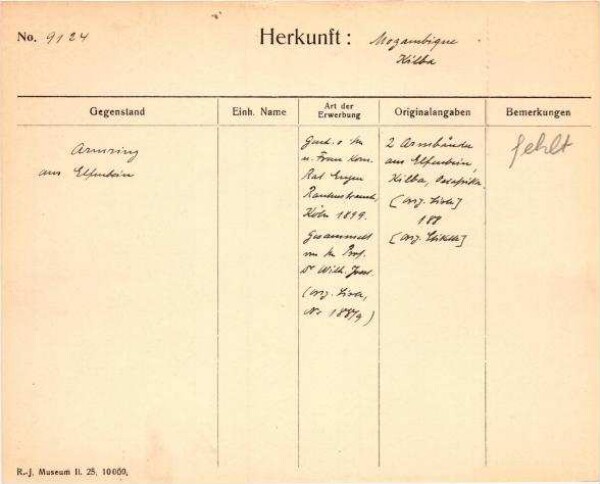 No. 9124 Herkunft: Mozambique
Kilba
Gegenstand Einh. Name Art der Erwerbung Originalangaben Bemerkungen
Armring
aus Elfenbein
Gesch. v. Hr.
u. Frau Kom.
Rat Eugen
Rautenstrauch,
Köln 1899.
Gesammelt
von Hr. Prof.
Dr Wilh. Joest.
(Orig. Liste,
No 188/9)
2 Armbände
aus Elfenbein,
Kilba, Ostafrika.
[Orig. Liste]
188
[Orig. Etikette]
fehlt
R.-J. Museum II. 25. 10000.